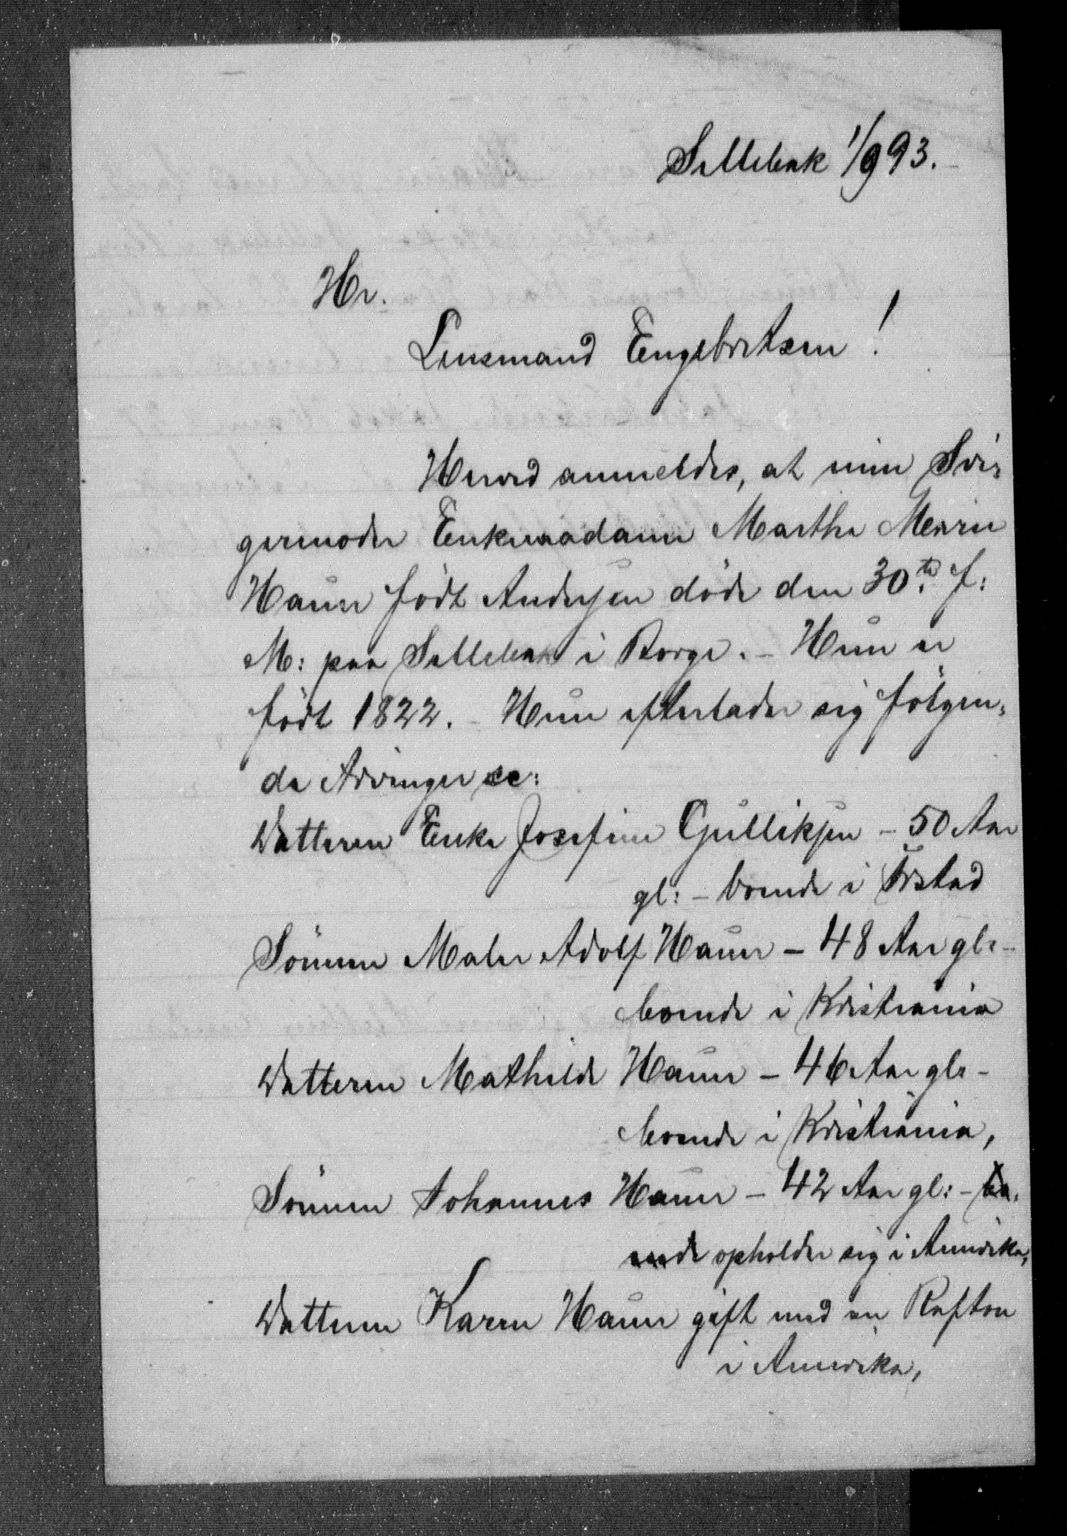 Sellebak 1/9 93.
Hr.
Lensmand Engebretsen!
Herved anmeldes, at min Svi-
germoder Enkemadame Marthe Marie
Haue født Andersen døde den 30te f:
M: paa Sellebak i Borge. – Hun er
født 1822. – Hun efterlader sig følgen-
de Arvinger
Datteren Enke Josefine Gulliksen – 50 Aar
gl: – boende i
Sønnen Maler Adolf Haue – 48 Aar gl: –
boende i Kristiania
Datteren Mathilde Haue – 46 Aar gl: –
boende i Kristiania,
Sønnen Johannes Haue – 42 Aar gl: –
opholder sig i Amerika,
Datteren Karen Haue gift med en Rafton
i Amerika,